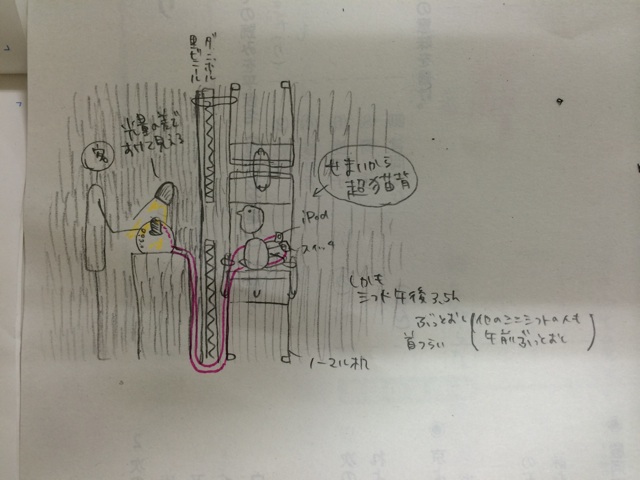 ダンボール
黒ビニール
光量の差で
すけて見える
客
せまいから
超猫背
iPod
スイッチ
しかも
シフト午後3.5h
ぶっとおし
(他のミニシフトの人も
午前ぶっとおし)
首つらい
ノーマル机